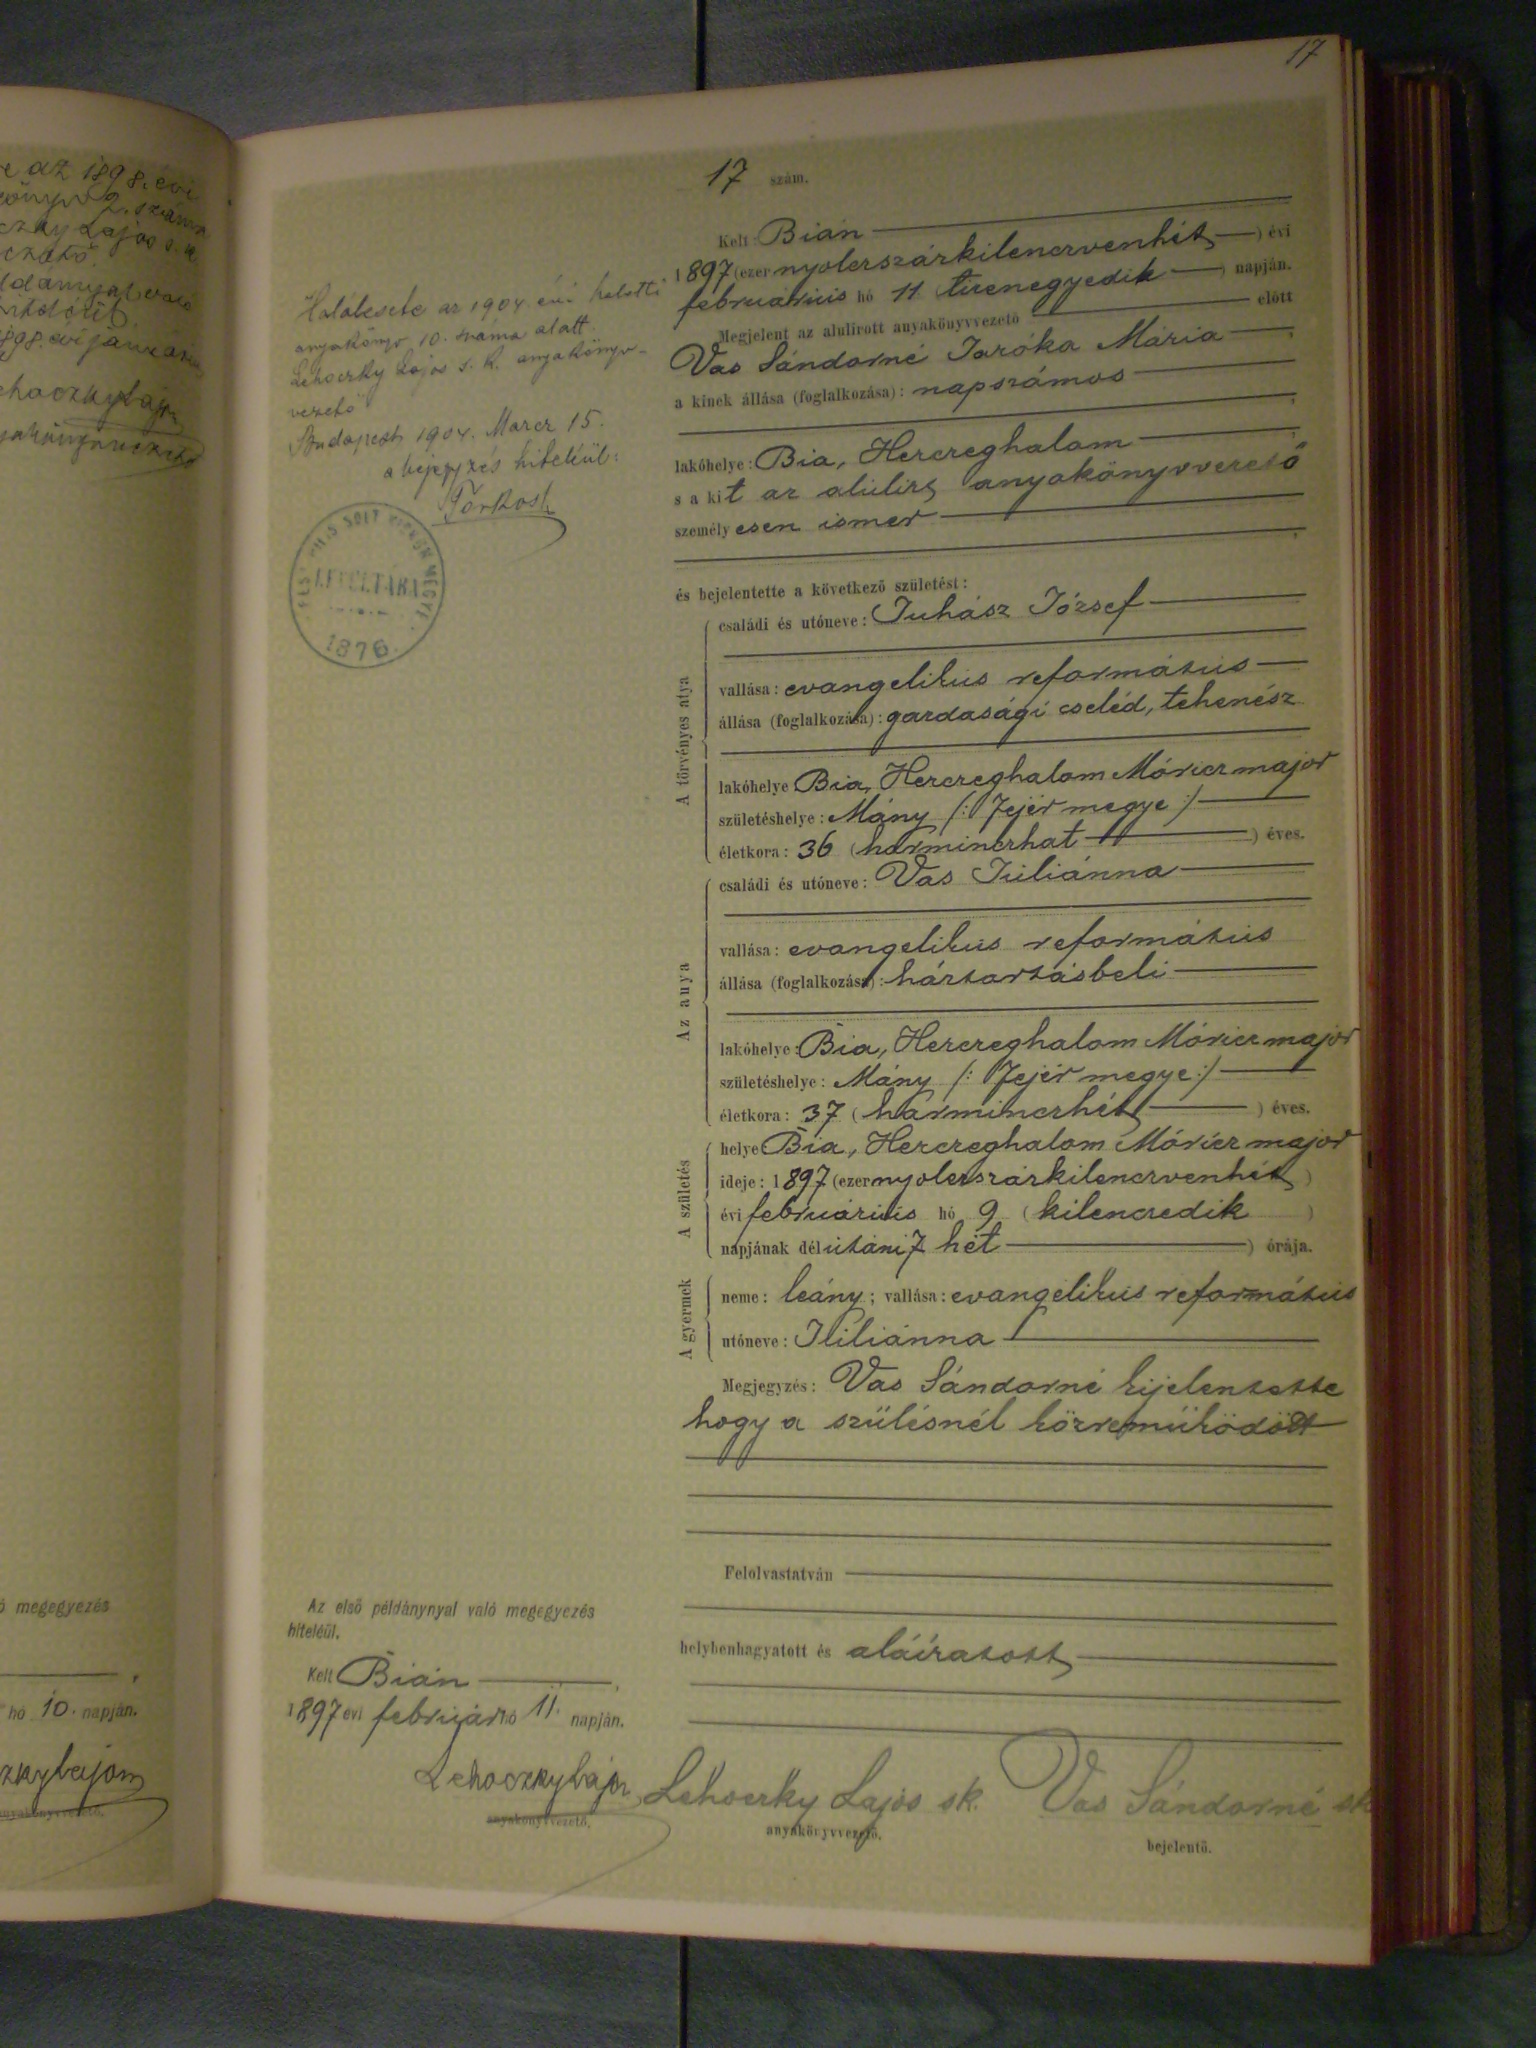 17
az 1898. évi
2. száma
Lajos s. k.
1898. évi január
Lehoczky Lajos
anyakönyvvezető
megegyezés
hó 10. napján.
Halálesete az 1904. évi halotti
anyakönyv 10. száma alatt.
Lehoczky Lajos s. k. anyakönyv-
vezető
Budapest 1904. Marcz 15.
a bejegyzés hiteléül:
LEVÉLTÁRA
1876.
17 szám.
Kelt: Bián
1897 (ezer nyolczszázkilenczvenhét) évi
februárius hó 11 tizenegyedik napján.
Megjelent az alulirott anyakönyvvezető előtt
Vas Sándorné Taróka Mária
a kinek állása (foglalkozása): napszámos
lakóhelye: Bia, Herczeghalom
s a kit az alulirt anyakönyvvezető
személyesen ismer
és bejelentette a következő születést:
A törvényes atya
családi és utóneve: Juhász József
vallása: evangelikus református
állása (foglalkozása): gazdasági cseléd, tehenész
lakóhelye Bia, Herczeghalom Móricz major
születéshelye: Mány /: Fejér megye :/
életkora: 36 (harminczhat) éves.
Az anya
családi és utóneve: Vas Juliánna
vallása: evangelikus református
állása (foglalkozása): háztartásbeli
lakóhelye: Bia, Herczeghalom Móricz major
születéshelye: Mány /: Fejér megye :/
életkora: 37 (harminczhét) éves.
A születés
helye Bia, Herczeghalom Móricz major
ideje: 1897 (ezer nyolczszázkilenczvenhét)
évi februárius hó 9 (kilenczedik)
napjának délutáni 7 hét) órája.
A gyermek
neme: leány; vallása: evangelikus református
utóneve: Juliánna
Megjegyzés: Vas Sándorné kijelentette
hogy a szülésnél közreműködött
Felolvastatván
helybenhagyatott és aláíratott
Az első példánynyal való megegyezés
hiteléül.
Kelt Bián
1897 évi február hó 11. napján.
Lehoczky Lajos
anyakönyvvezető.
Lehoczky Lajos sk.
anyakönyvvezető.
Vas Sándorné sk
bejelentő.